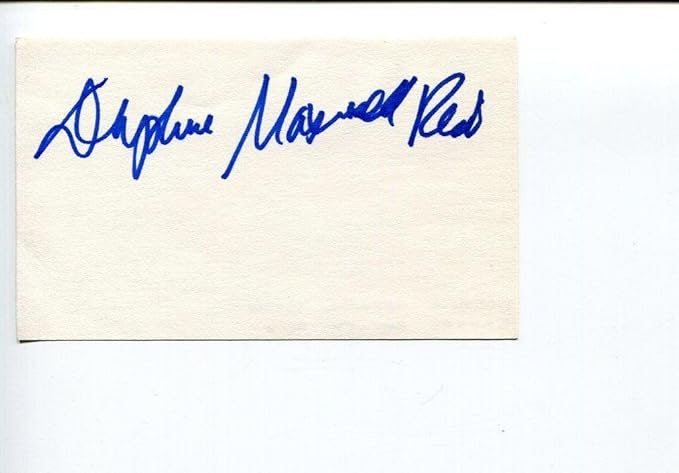 Daphne Maxwell Reid